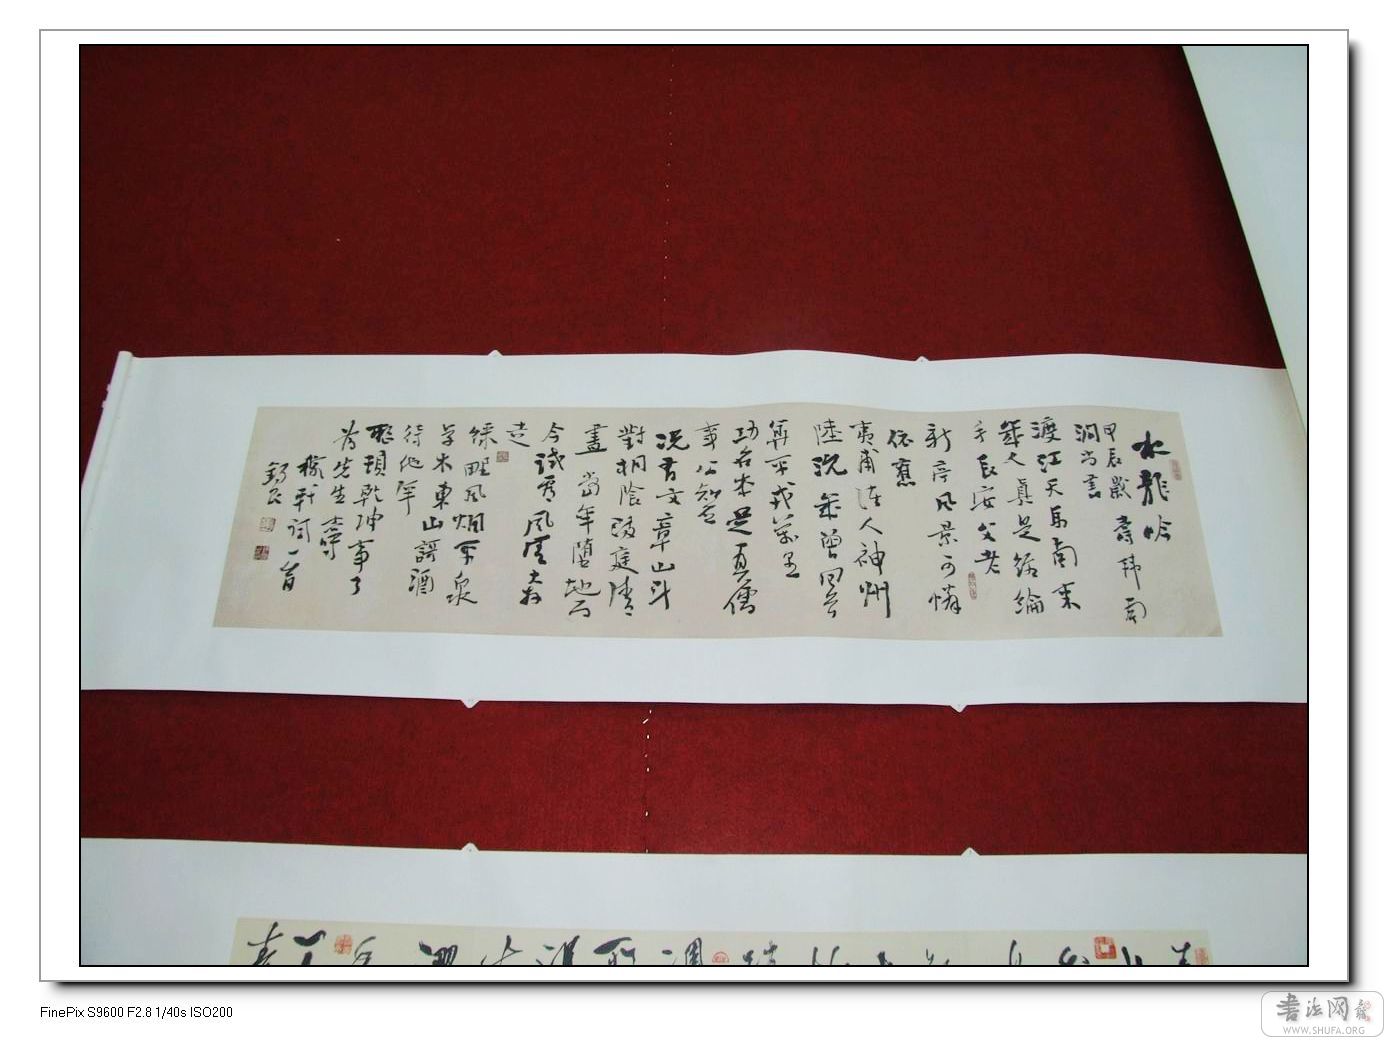 水龍吟
甲辰歲壽韩南
澗尚書
渡江天馬南來
幾人真是經綸
手長安父老
新亭風景可憐
依舊
夷甫诸人神州
陸沈幾曾回首
算平戎萬里
功名本是真儒
事公知否
况有文章山斗
對桐陰滿庭清
晝當年墮地而
今試看風雲奔
走
綠野風烟平泉
草木東山歌酒
待他年
整頓乾坤事了
为先生壽
稼軒詞一首
FinePix S9600 F2.8 1/40s ISO200
書法网
WWW.SHUFA.ORG